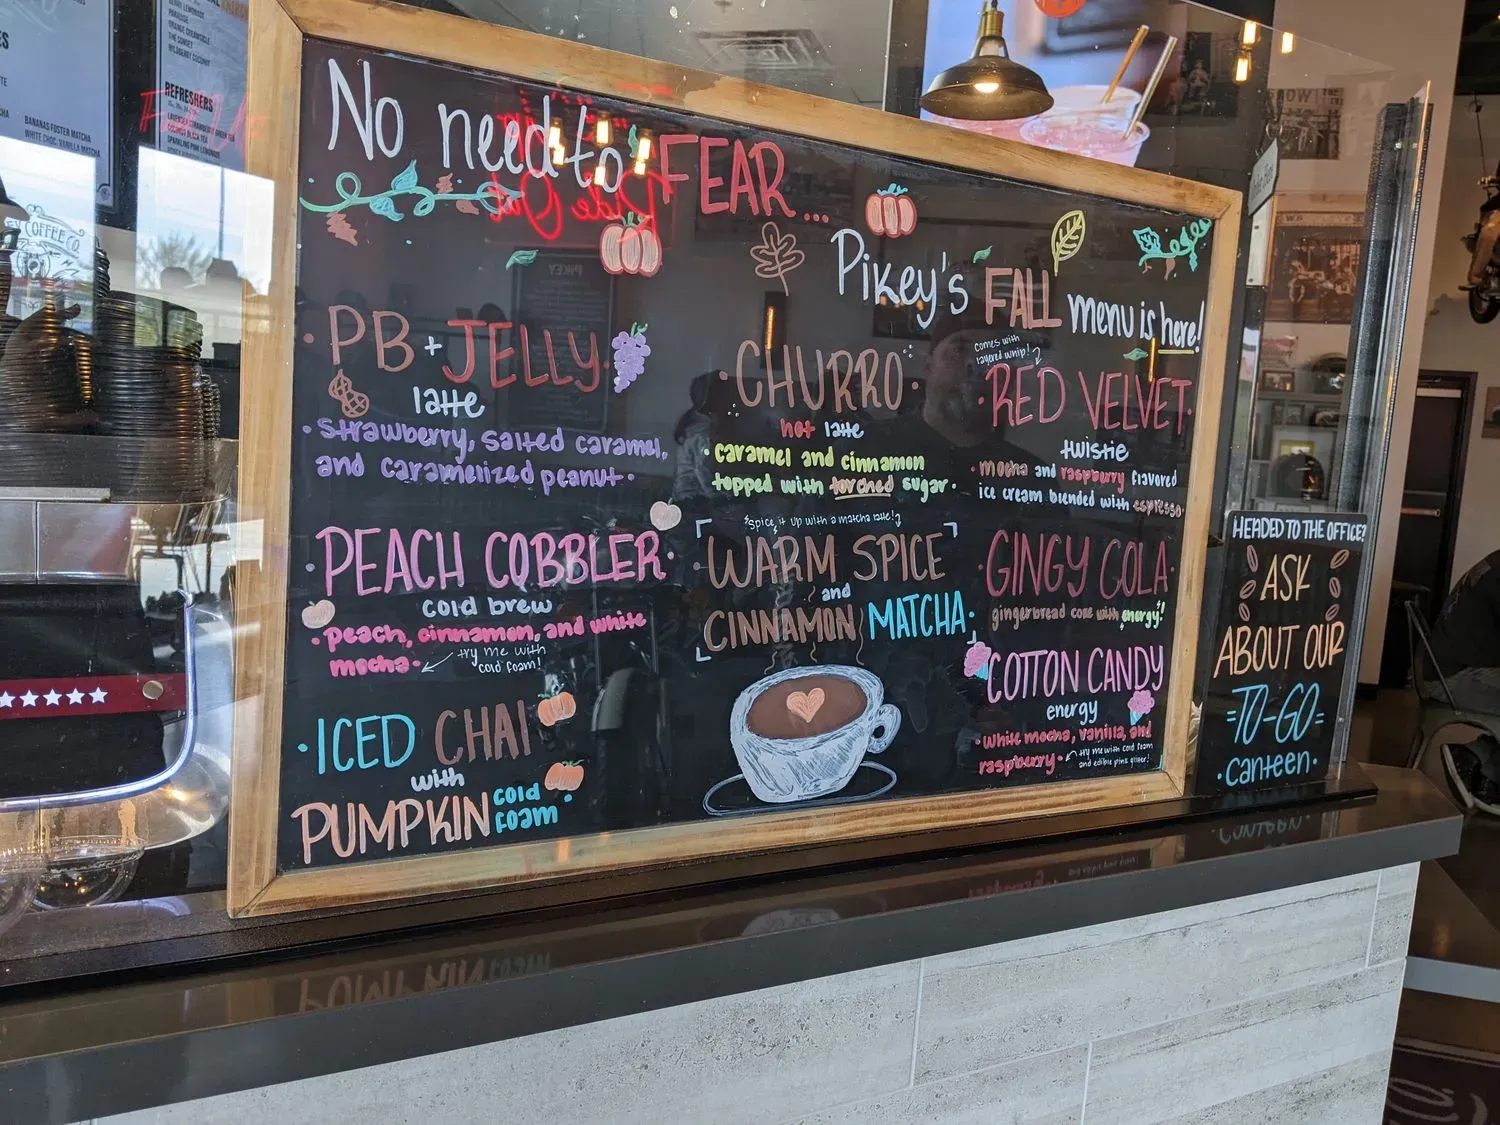 No need to FEAR...
Pikey's FALL menu is here!
PB + JELLY
latte
strawberry, salted caramel,
and caramelized peanut
PEACH COBBLER
cold brew
peach, cinnamon, and white
mocha
try me with
cold foam!
ICED CHAI
with
PUMPKIN cold
foam
CHURRO
hot latte
caramel and cinnamon
topped with torched sugar.
spice it up with a matcha latte!
WARM SPICE
and
CINNAMON MATCHA
comes with
layered whip!
RED VELVET
twistie
mocha and raspberry flavored
ice cream blended with espresso
GINGY COLA
gingerbread coke with energy!
COTTON CANDY
energy
white mocha, vanilla, and
raspberry
try me with cold foam
and edible pink glitter!
HEADED TO THE OFFICE?
ASK
ABOUT OUR
TO-GO
canteen
REFRESHERS
LAVENDER STRAWBERRY GREEN TEA
COCONUT BLACK TEA
SPARKLING PINK LEMONADE
BANANAS FOSTER MATCHA
WHITE CHOC. VANILLA MATCHA
PARADISE
ORANGE CREAMSICLE
THE SUNSET
WILDBERRY COCONUT
COFFEE CO.